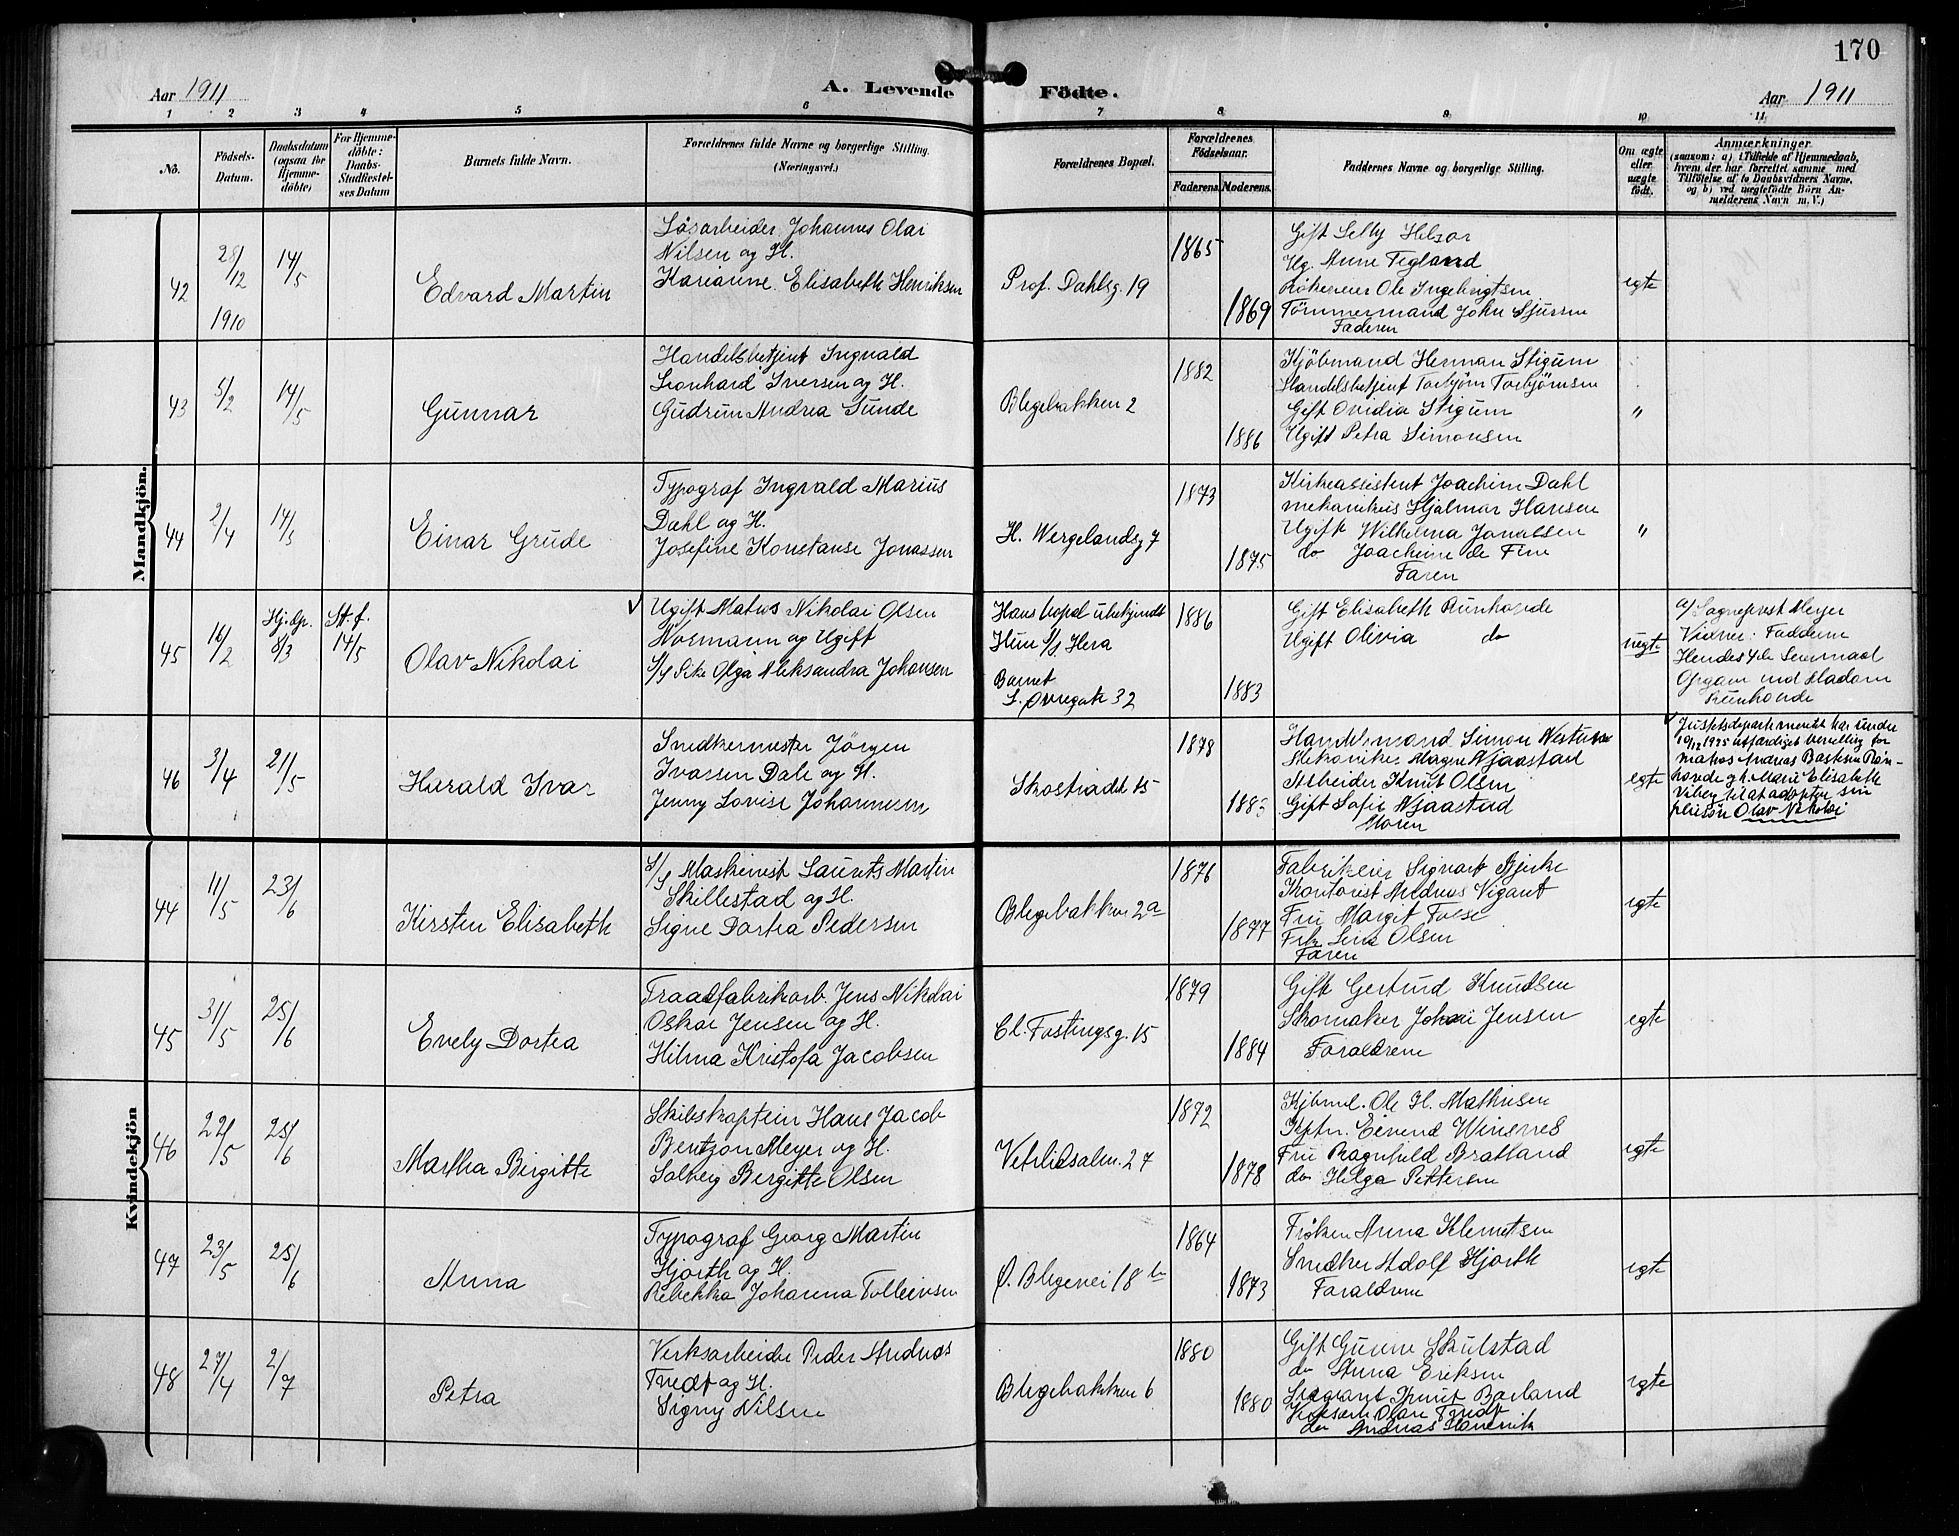 170
Aar 1911
A. Levende Födte.
Aar 1911
1 2 3 4 5 6 7 8 9 10 11
No.
Födsels-
Datum.
Daabsdatum
(ogsaa for
Hjemme-
döbte)
For Hjemme-
döbte:
Daabs-
Stadfæstel-
ses Datum
Barnets fulde Navn.
Forældrenes fulde Navne og borgerlige Stilling.
(Næringsvei.)
Forældrenes Bopæl.
Forældrenes
Födselsaar.
Faderens.
Moderens.
Faddernes Navne og borgerlige Stilling.
Om ægte
eller
uægte
födt.
Anmærkninger
(saasom: a) i Tilfælde af Hjemmedaab,
hvem der har forrettet samme med
Tilföielse af to Daabsvidners Navne,
og b) ved uægtefödte Börn An-
melderens Navn m. V.)
Mandkjön.
42
28/12
1910
14/5
Edvard Martin
Løsarbeider Johannes Olai
Nilsen og H.
Karianne Elisabeth Henriksen
Prof. Dahlsg. 19
1865
1869
Gift Selly
Ug. Anne Tegland
Ole Ingebrigtsen
Tömmermand John Sjursen
Faderen
egte
43
5/2
14/5
Gunnar
Handelsbetjent Ingvald
Leonhard Iversen og H.
Gudrun Andrea Sunde
Blegebakken 2
1882
1886
Kjöbmand Herman Stigum
Handelsbetjent Torbjörn Torbjörnsen
Gift Ovidia Stigum
Ugift Petra Simonsen
"
44
2/4
14/5
Einar Grude
Typograf Ingvald Marius
Dahl og H.
Josefine Konstanse Jonassen
H. Wergelandsg 7
1873
1875
Kirkeassistent Joachim Dahl
mekanikus Hjalmar Hansen
Ugift Wilhelma Jonassen
do Joachime de Fine
Faren
"
45
16/2
Hj. dp.
8/3
St. f.
14/5
Olav Nikolai
Ugift Matias Nikolai Olsen
Nosmann og Ugift
s/s Pike Olga Aleksandra Johansen
Hans bopæl ubekjendt
Hun s/s Hera
Barnet
L. Øvregate 32
1886
1883
Gift Elisabeth Runhovde
Ugift Olivia do
uegte
a/ Sogneprest Meyer
Vidner: Faddern
Hendes 4de Leiermaal
Opgave ved Madam
Runhovde
46
3/4
21/5
Harald Ivar
Snedkermester Jörgen
Ivarsen Dale og H.
Jenny Lovise Johannesen
Skostrædet 15
1878
1883
Handelsmand Simon
Mekaniker Magne Njaastad
Arbeider Knut Olsen
Gift Sofie Njaastad
Moren
egte
Justitsdepartementet har under
10/12 1925 utfærdiget bevilling for
Matias Andreas Run-
hovde g.h. Marie Elisabeth
Viberg til at adoptere sin
pleiesøn Olav Nikolai
Kvindekjön
44
11/5
23/6
Kirsten Elisabeth
s/s Maskinist Laurits Martin
Skillestad og H.
Signe Dortea Pedersen
Blegebakken 2a
1876
1877
Fabrikeier Sigvart Bjerke
Kontorist Andreas Vigant
Fru Margit Fosse
Frk Lina Olsen
Faren
egte
45
31/5
25/6
Evely Dortea
Traadfabrikarb. Jens Nikolai
Oskar Jensen og H.
Hilma Kristofa Jacobsen
Cl. Fastingsg. 15
1879
1884
Gift Gertrud Knudsen
Skomaker Johan Jensen
Foraldrene
egte
46
22/5
25/6
Martha Birgitte
Skibskaptein Hans Jacob
Bentzon Meyer og H.
Solveig Bergitte Olsen
Vetrlidsalm. 27
1872
1878
Kjbmd. Ole H. Mathisen
Kptn. Eivend Winsnes
Fru Ragnhild Bratland
do Helga Pettersen
egte
47
23/5
25/6
Anna
Typograf Georg Martin
Hjorth og H.
Rebekka Johanna Tolleivsen
Ø. Blegevei 18 b
1864
1873
Fröken Anna Klemetsen
Snedker Adolf Hjorth
Foraldrene
egte
48
27/4
2/7
Petra
Verksarbeider Peder Andreas
Tvedt og H.
Signy Nilsen
Blegebakken 6
1880
1880
Gift Gurine Skulstad
do Anna Eriksen
Sergeant Knut Børland
Olav Tvedt
do Andreas
egte